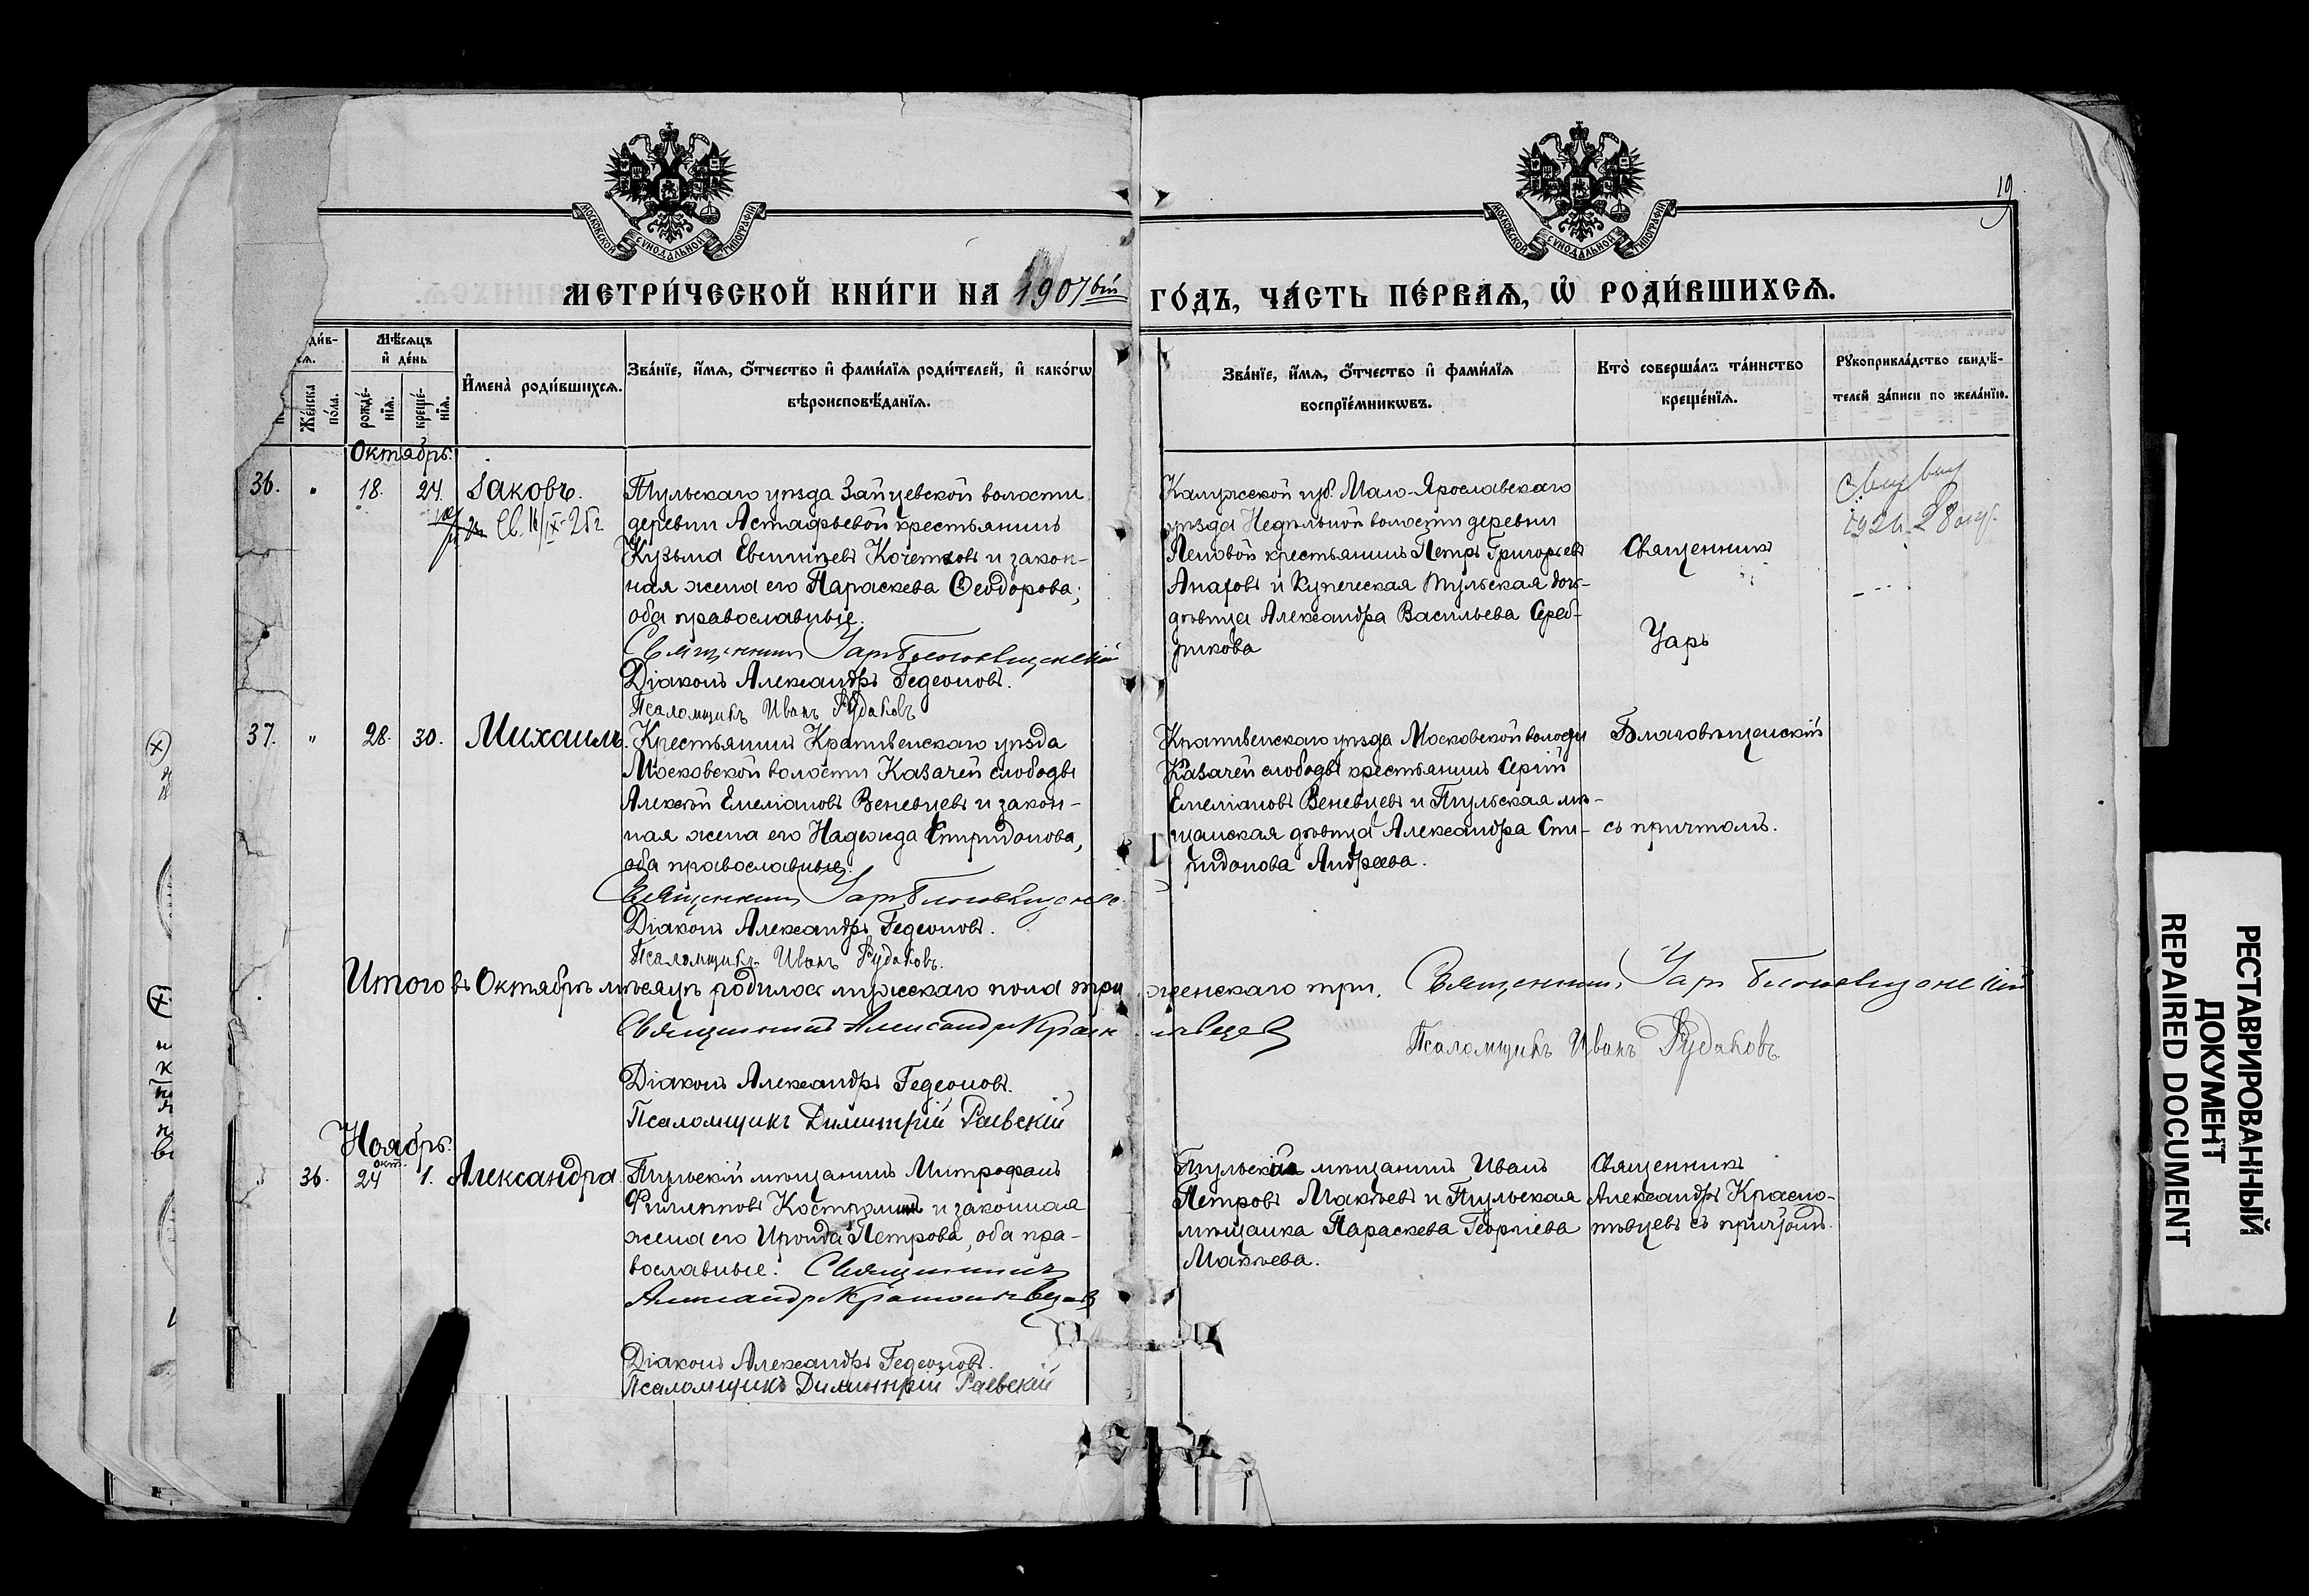 19
МОСКОВСКОЙ СѴНОДАЛЬНОЙ ТИПОГРАФІИ
МОСКОВСКОЙ СѴНОДАЛЬНОЙ ТИПОГРАФІИ
МЕТРИ́ЧЕСКОЙ КНИ́ГИ НА 1907ый ГО́ДЪ, ЧА́СТЬ ПЕ́РВАѦ, Ѡ҆ РОДИ́ВШИХСѦ.
Же́нска по́ла.
Мѣ́сѧцъ и҆ де́нь
рожде́нїѧ.
креще́нїѧ.
И҆мена̀ роди́вшихсѧ.
Зва́нїе, и҆́мѧ, ѻ҆́тчество и҆ фами́лїѧ роди́телей, и҆ како́гѡ
вѣроисповѣ́данїѧ.
Зва́нїе, и҆́мѧ, ѻ҆́тчество и҆ фами́лїѧ
воспрїе́мникѡвъ.
Кто̀ соверша́лъ та́инство
креще́нїѧ.
Рꙋкоприкла́дство свидѣ́-
телей за́писи по жела́нїю.
Октябрь.
36. " 18. 24. Іаковъ.
Тульскаго уѣзда Зайцевской волости
деревни Астафьевой крестьянинъ
Кузьма Евсигнѣевъ Кочетковъ и закон-
ная жена его Параскева Ѳеодорова;
оба православные.
Священникъ Уаръ Благовѣщенскій
Діаконъ Александръ Гедеоновъ.
Псаломщикъ Иванъ Рудаковъ
Калужской губ. Мало-Ярославскаго
уѣзда Недѣльной волости деревни
крестьянинъ Петръ Григорьевъ
и Купеческая Тульская дочь-
дѣвица Александра Васильева Сереб-
рикова
Священникъ
Уаръ
Благовѣщенскій
съ причтомъ.
37. " 28. 30. Михаилъ.
Крестьянинъ Крапивенскаго уѣзда
Московской волости Казачей слободы
Алексѣй Емеліановъ Веневцевъ и закон-
ная жена его Надежда Спиридонова,
оба православные.
Священникъ Уаръ Благовѣщенс.
Діаконъ Александръ Гедеоновъ.
Псаломщикъ Иванъ Рудаковъ.
Крапивенскаго уѣзда Московской волости
Казачей слободы крестьянинъ Сергій
Емеліановъ Веневцевъ и Тульская мѣ-
щанская дѣвица Александра Спи-
ридонова Андреева.
Итого въ Октябрѣ мѣсяцѣ родилось мужскаго пола три женскаго три. Священникъ Уаръ Благовѣщенскій
Священникъ Александръ Краснопѣвцевъ
Псаломщикъ Иванъ Рудаковъ.
Діаконъ Александръ Гедеоновъ.
Псаломщикъ Димитрій Раевскій
Ноябрь.
окт.
36. 24 1. Александра.
Тульскій мѣщанинъ Митрофанъ
Филипповъ и законная
жена его Ироида Петрова, оба пра-
вославные. Священникъ
Александръ Краснопѣвцевъ
Діаконъ Александръ Гедеоновъ.
Псаломщикъ Димитрій Раевскій
Тульскій мѣщанинъ Иванъ
Петровъ Макѣевъ и Тульская
мѣщанка Параскева Георгіева
Макѣева.
Священникъ
Александръ Красно-
пѣвцевъ съ причтомъ.
РЕСТАВРИРОВАННЫЙ
ДОКУМЕНТ
REPAIRED DOCUMENT